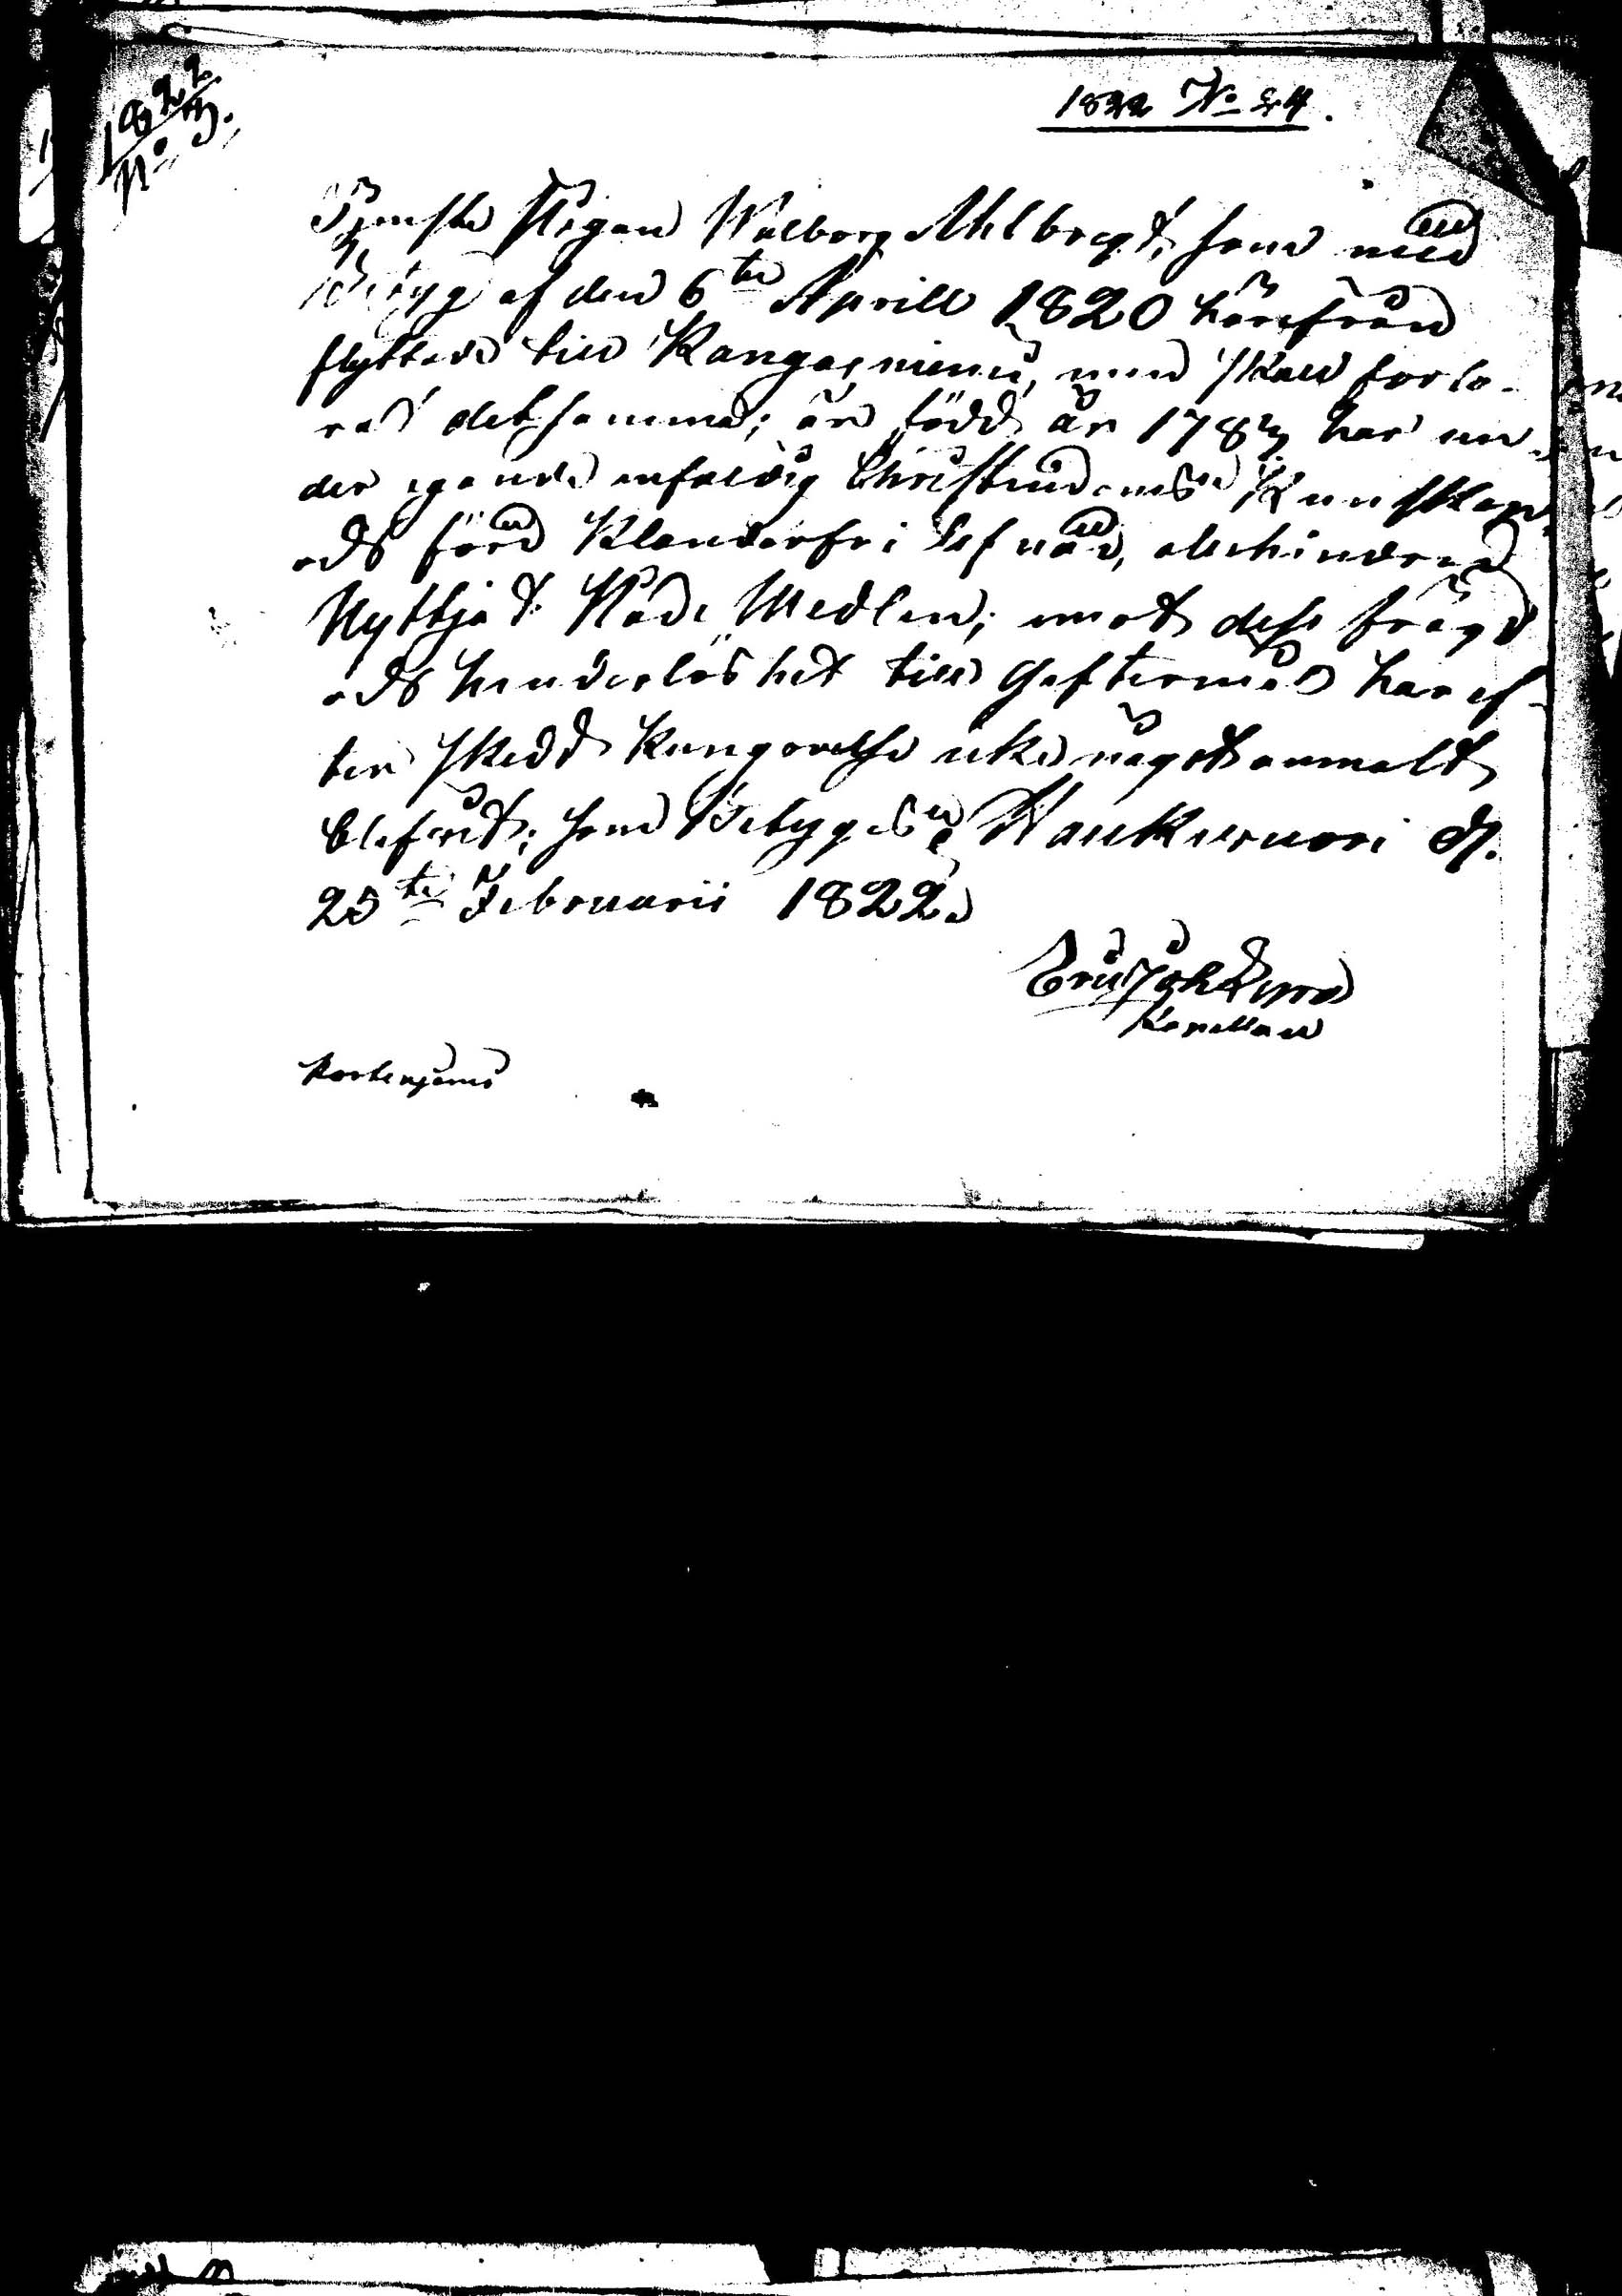 1822
No 3.
1822 No 24.
Tjenste Pigan Walborg Ahlbregt, som med
Betyg af den 6te Aprill 1820 härifrån
flyttade till Kangasniemi, men skall förlo-
rat detsamma; är född år 1783, har un-
der egande enfaldig Christendoms Kunskap
och förd Klanderfri Lefnad, obehindrad
Nyttjat Nåde Medlen; emot dess frägd
och hinderlöshet till Giftermål har ef-
ter skedd kungörelse icke något anmält
blifvit; som Betygas Haukivuori d.
25te Februarii 1822.
Eric Joh
Kapellan